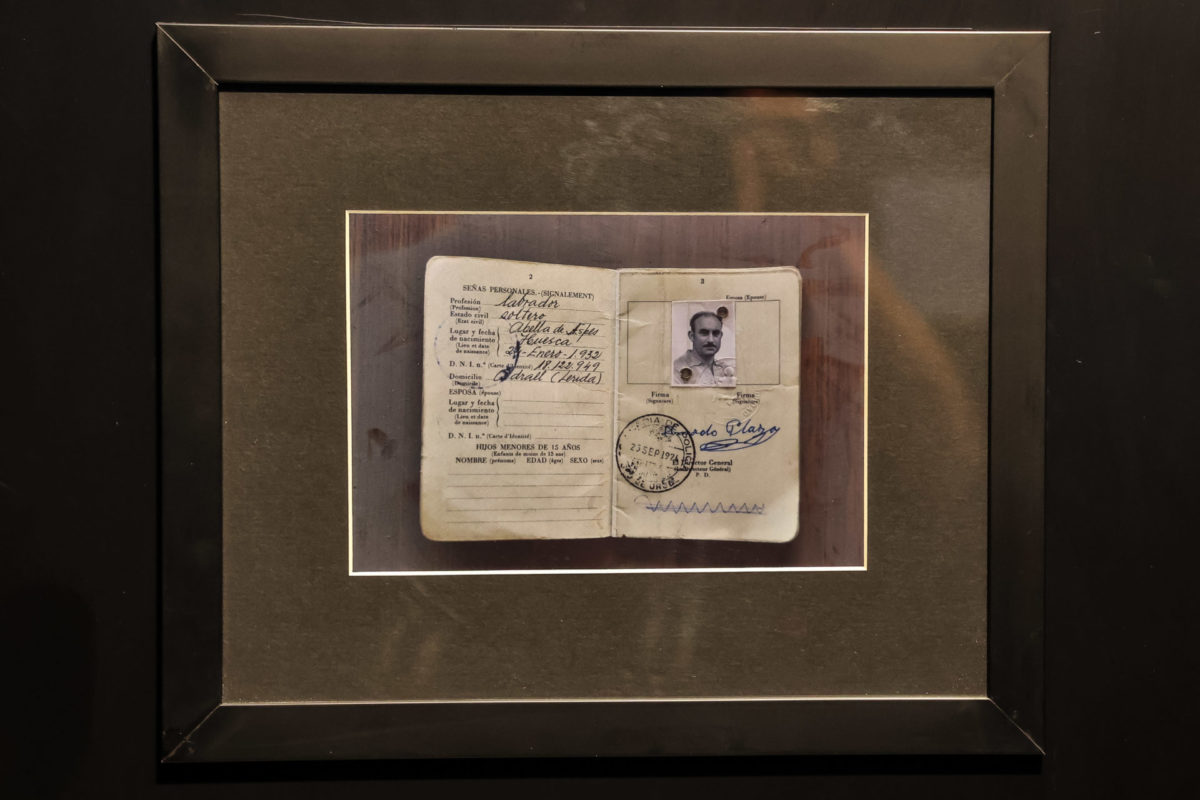 2
SEÑAS PERSONALES.-(SIGNALEMENT)
Profesión labrador
(Profession)
Estado civil soltero
(Etat civil)
Lugar y fecha de nacimiento
(Lieu et date de naissance)
Huesca
Enero-1.932
D. N. I. n.º (Carte d'Identité) 18.122.949
Domicilio
(Domicile)
ESPOSA (épouse)
Lugar y fecha de nacimiento
(Lieu et date de naissance)
D. N. I. n.º (Carte d'Identité)
HIJOS MENORES DE 15 AÑOS
(Enfants de moins de 15 ans)
NOMBRE (prénoms) EDAD (âges) SEXO (sexe)
3
Esposa (Epouse)
Firma Firma
(Signature) (Signature)
Plaza
23 SEP 1974
Director General
(Directeur Général)
P. D.